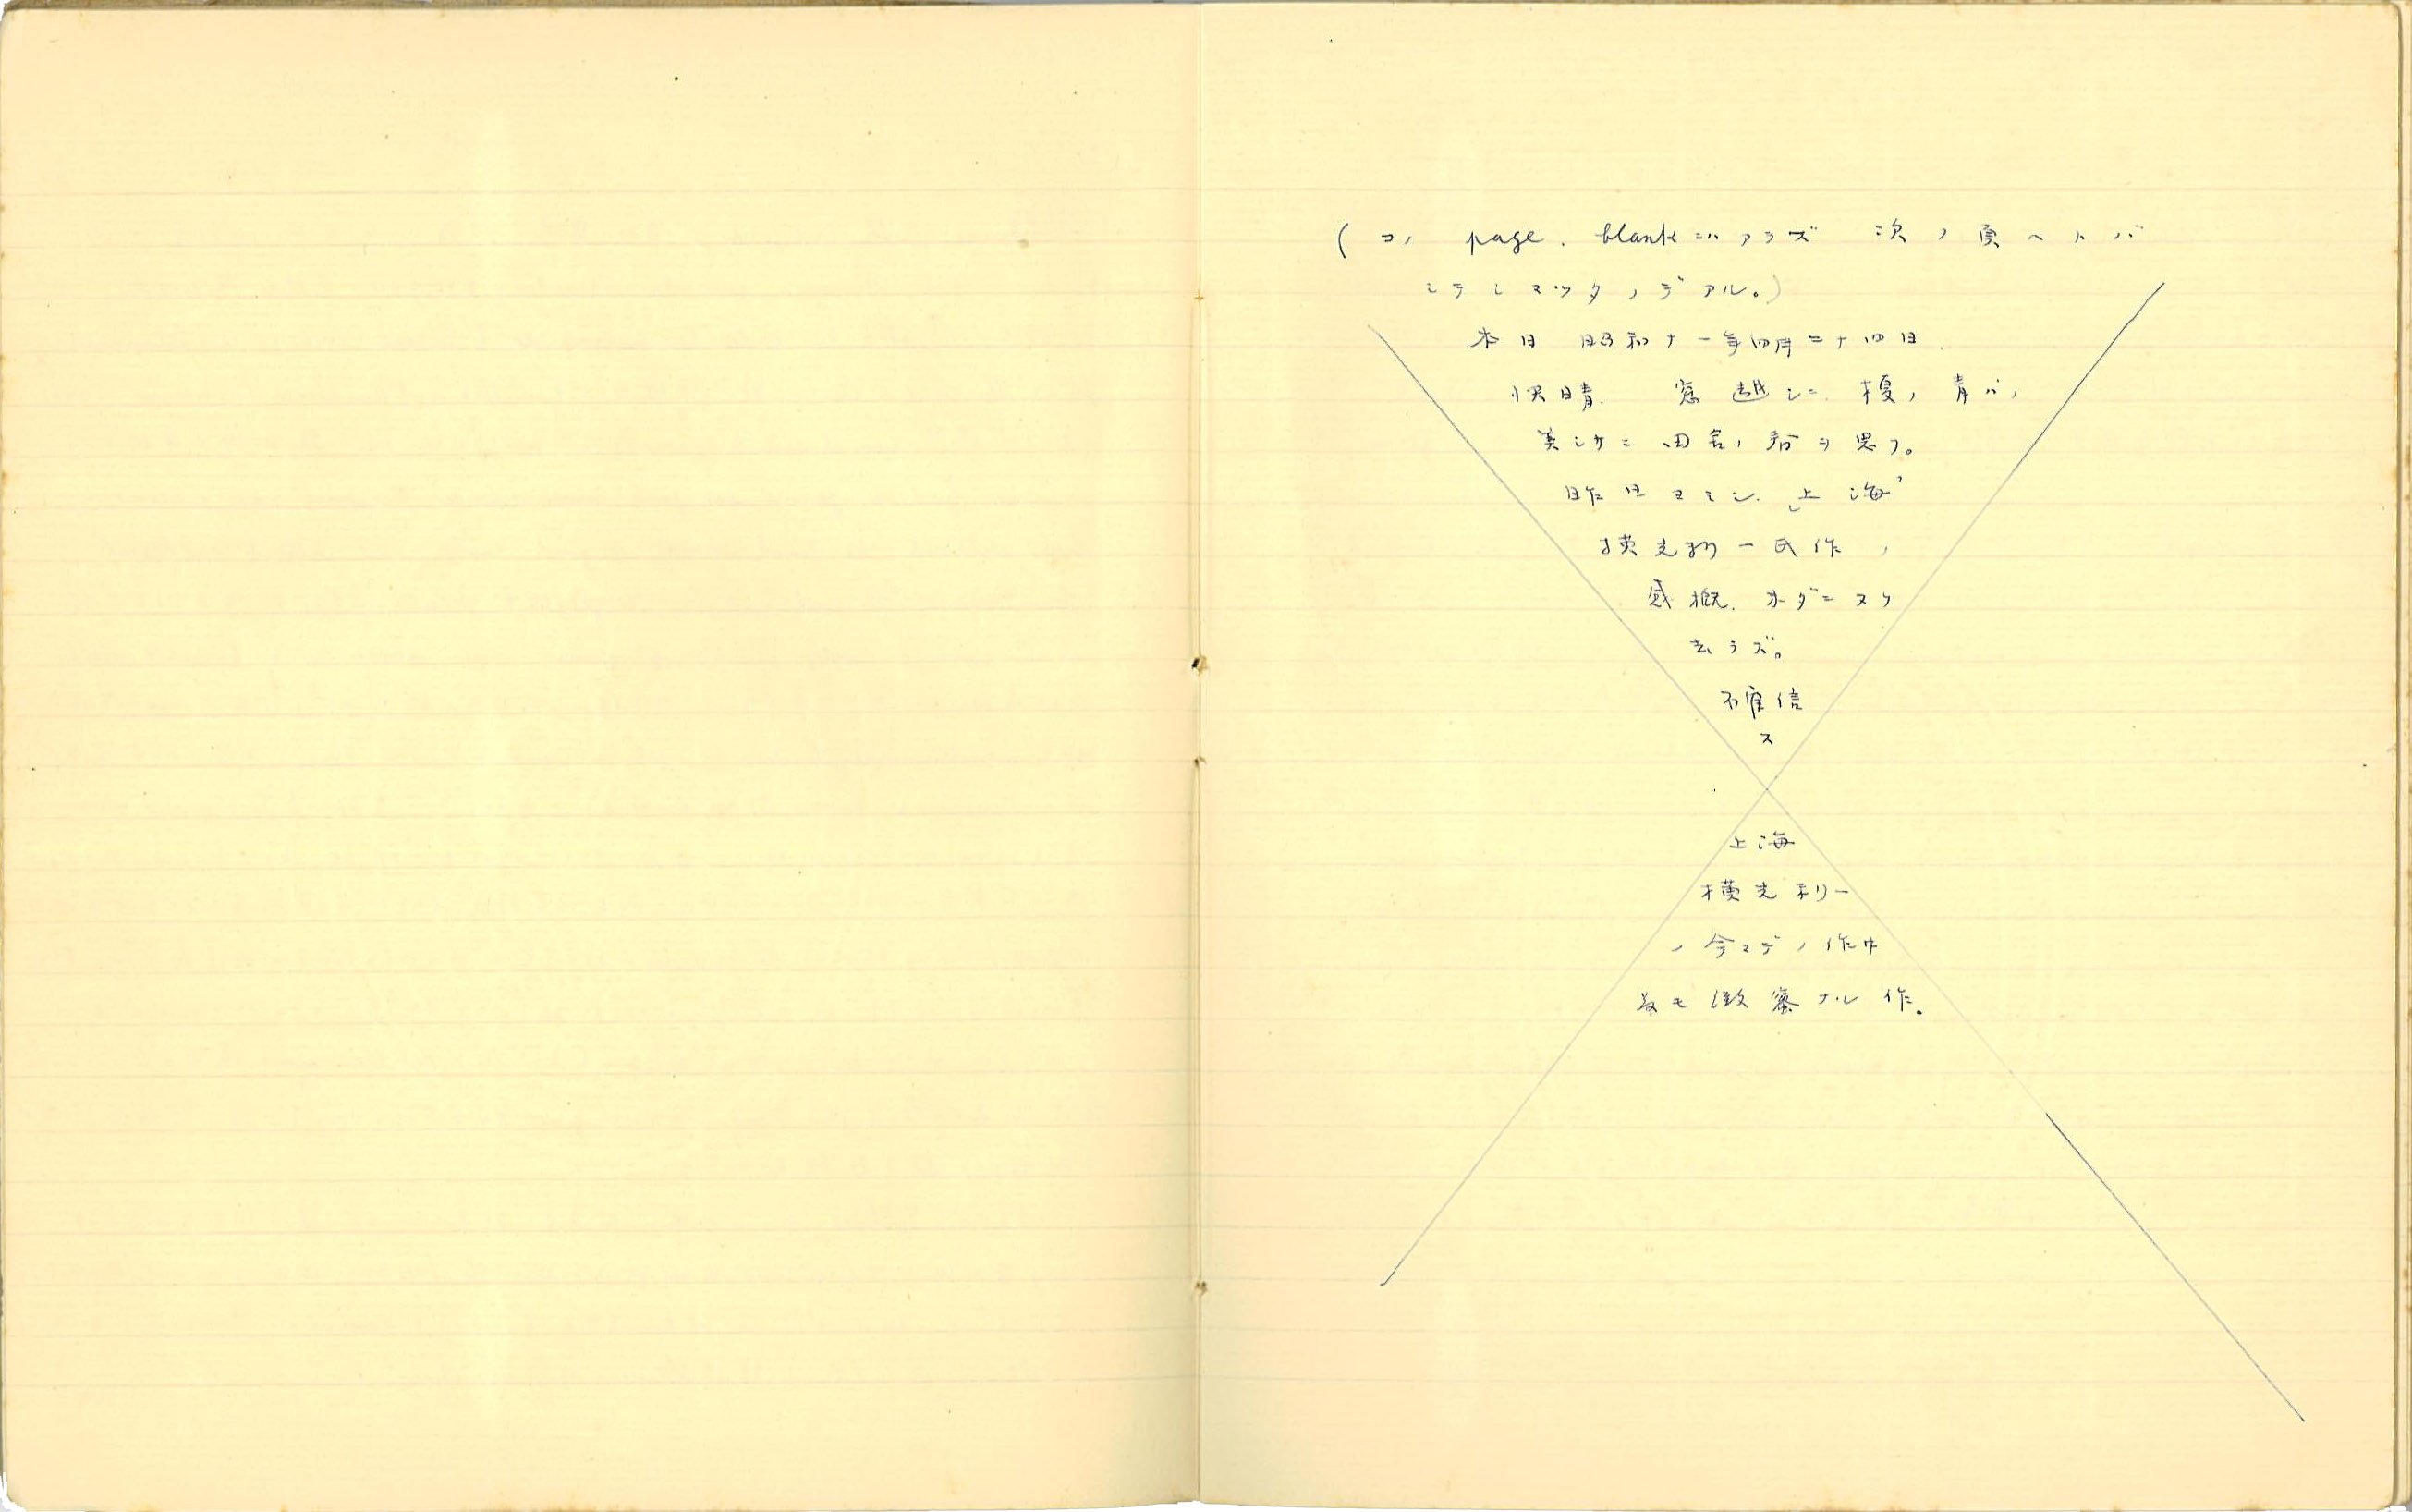 (コノ page. blank ニハアラズ 次ノ頁ヘトバ
シテシマツタノデアル。)
本日 昭和十一年四月二十四日.
快晴. 窓越シニ. 榎ノ青ガ,
美シサニ 田舎ノ春ヲ思フ。
昨日ヨミシ.「上海」
横光利一氏作ノ
感慨. 未ダニヌケ
去ラズ。
不確信
ス
上海
横光利一
ノ今マデノ作中
最モ緻密ナル作。